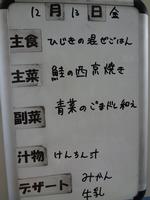 12月13日金
主食 ひじきの混ぜごはん
主菜 鮭の西京焼き
副菜 青菜のごまどと和え
汁物 けんちん汁
デザート みかん
牛乳